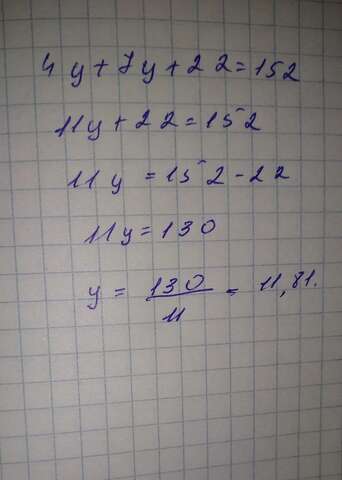 4y+7y+22=152
11y+22=152
11y=152-22
11y=130
y=130/11=11,81.